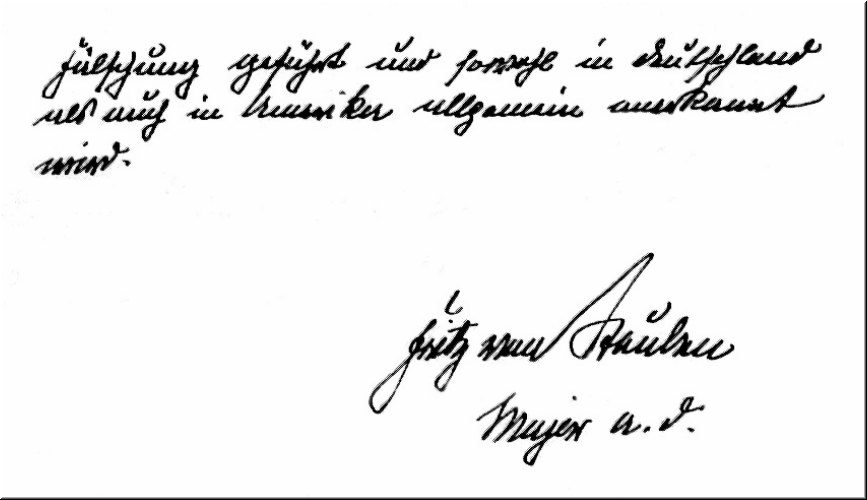 Fälschung geführt und sowohl in Deutschland
als auch in Amerika allgemein anerkannt
wird.
Fritz von Steuben
Major a. D.